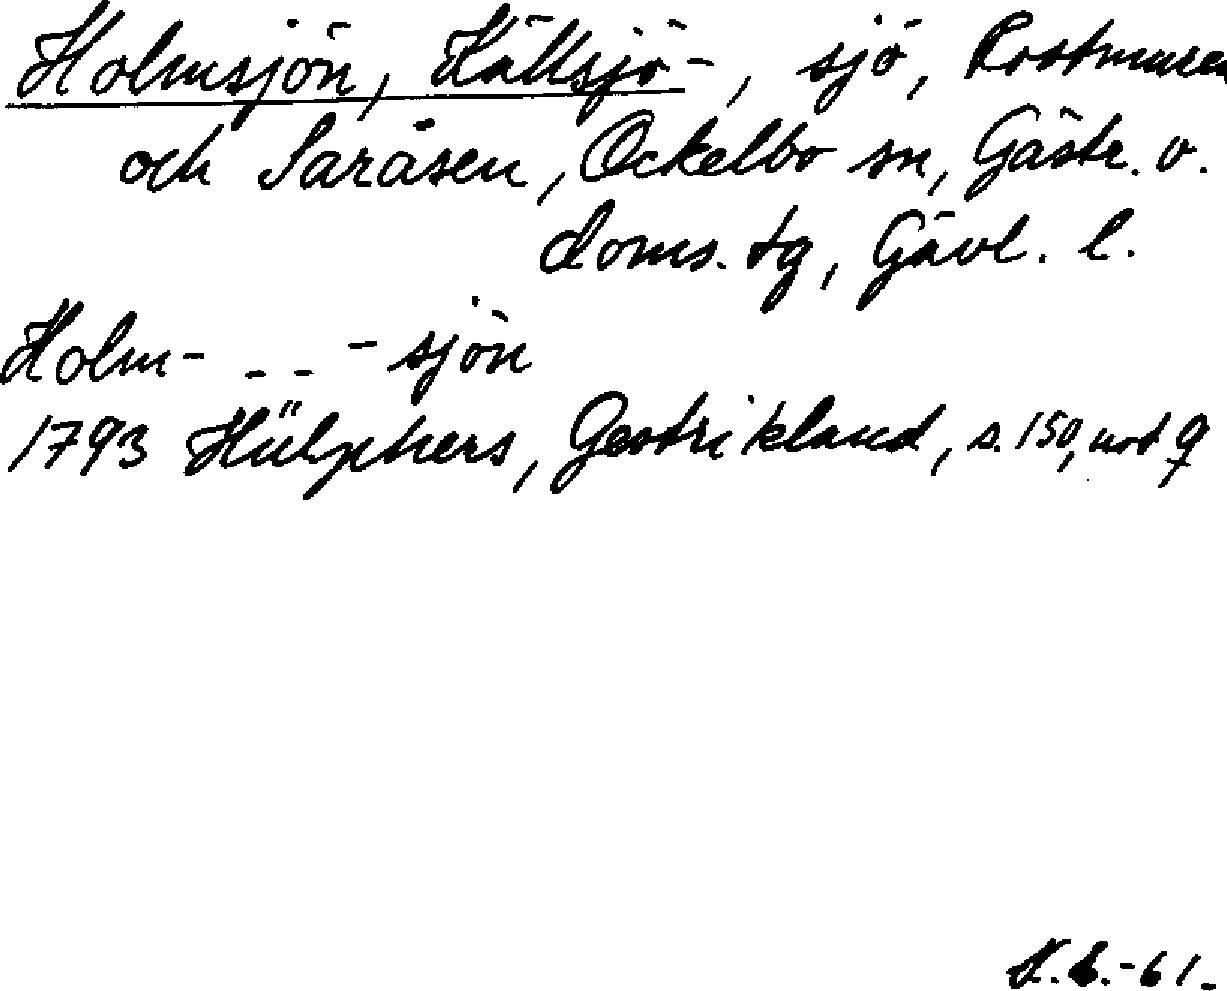 Holmsjön, Källsjö-, sjö, Rostmuren
och Saråsen, Ockelbo sn, Gästr. v.
doms. tg, Gävl. l.
Holm- - - - sjön
1793 Hülphers, Gestrikland, s. 150, not q
K.L.-61.